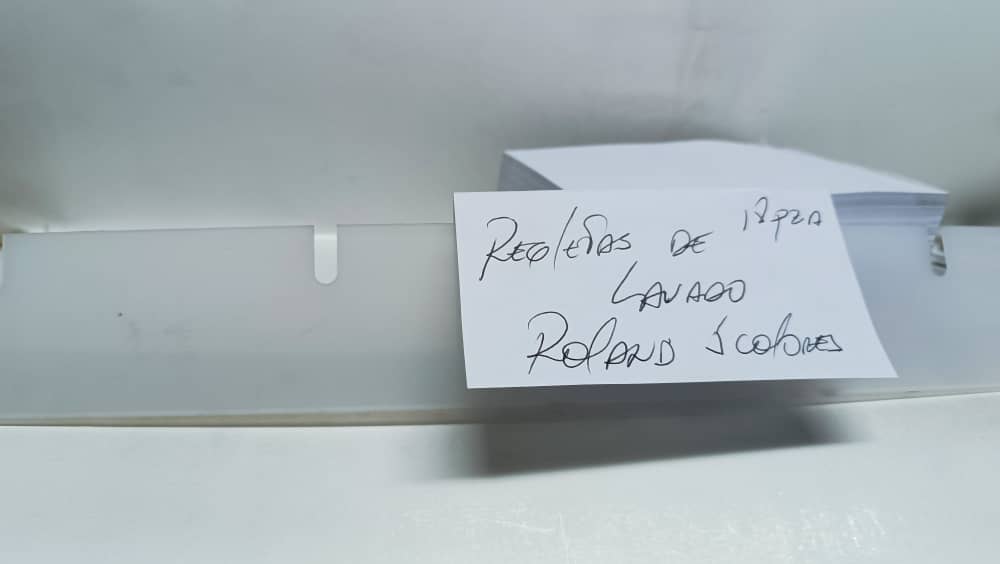 REGLETAS DE 18 PZA
LAVADO
ROLAND 5 COLORES